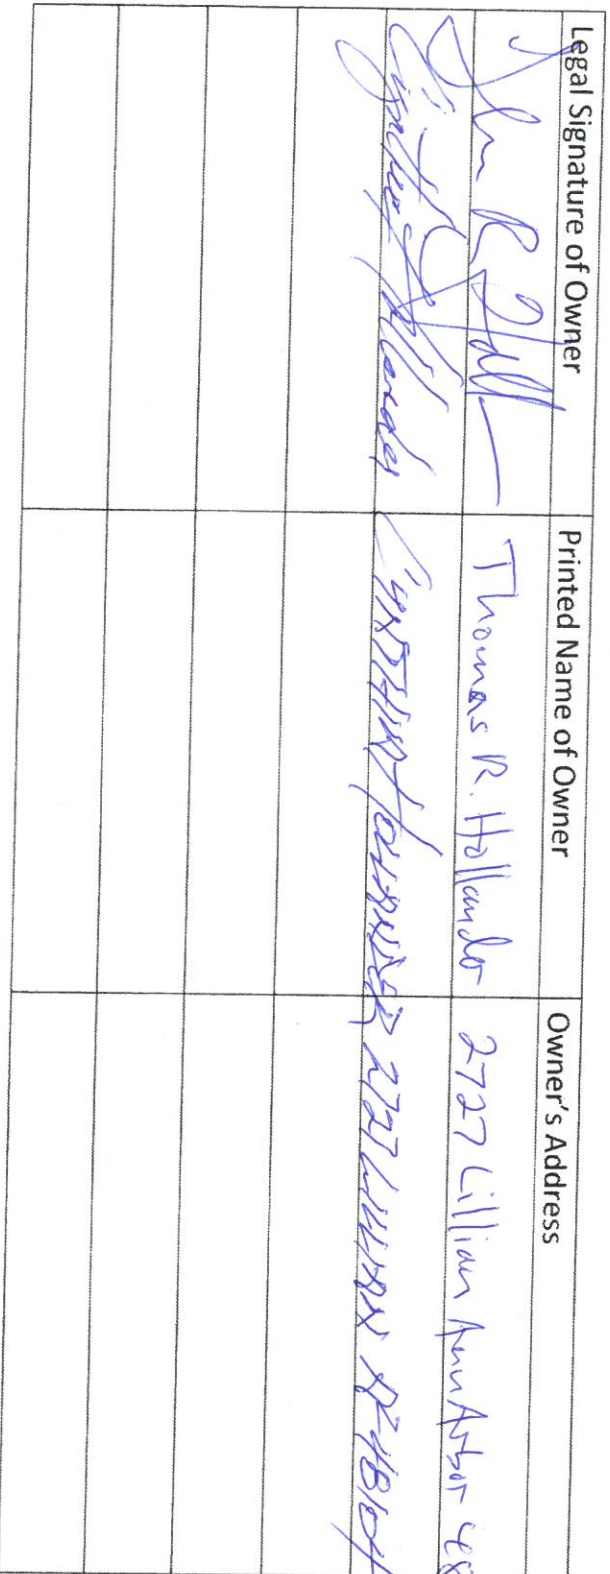 Legal Signature of Owner Printed Name of Owner Owner's Address
Thomas R. Hollander 2727 Lillian Ann Arbor 48
Cynthia Hollander CYNTHIA HOLLANDER 2727 LILLIAN 48104